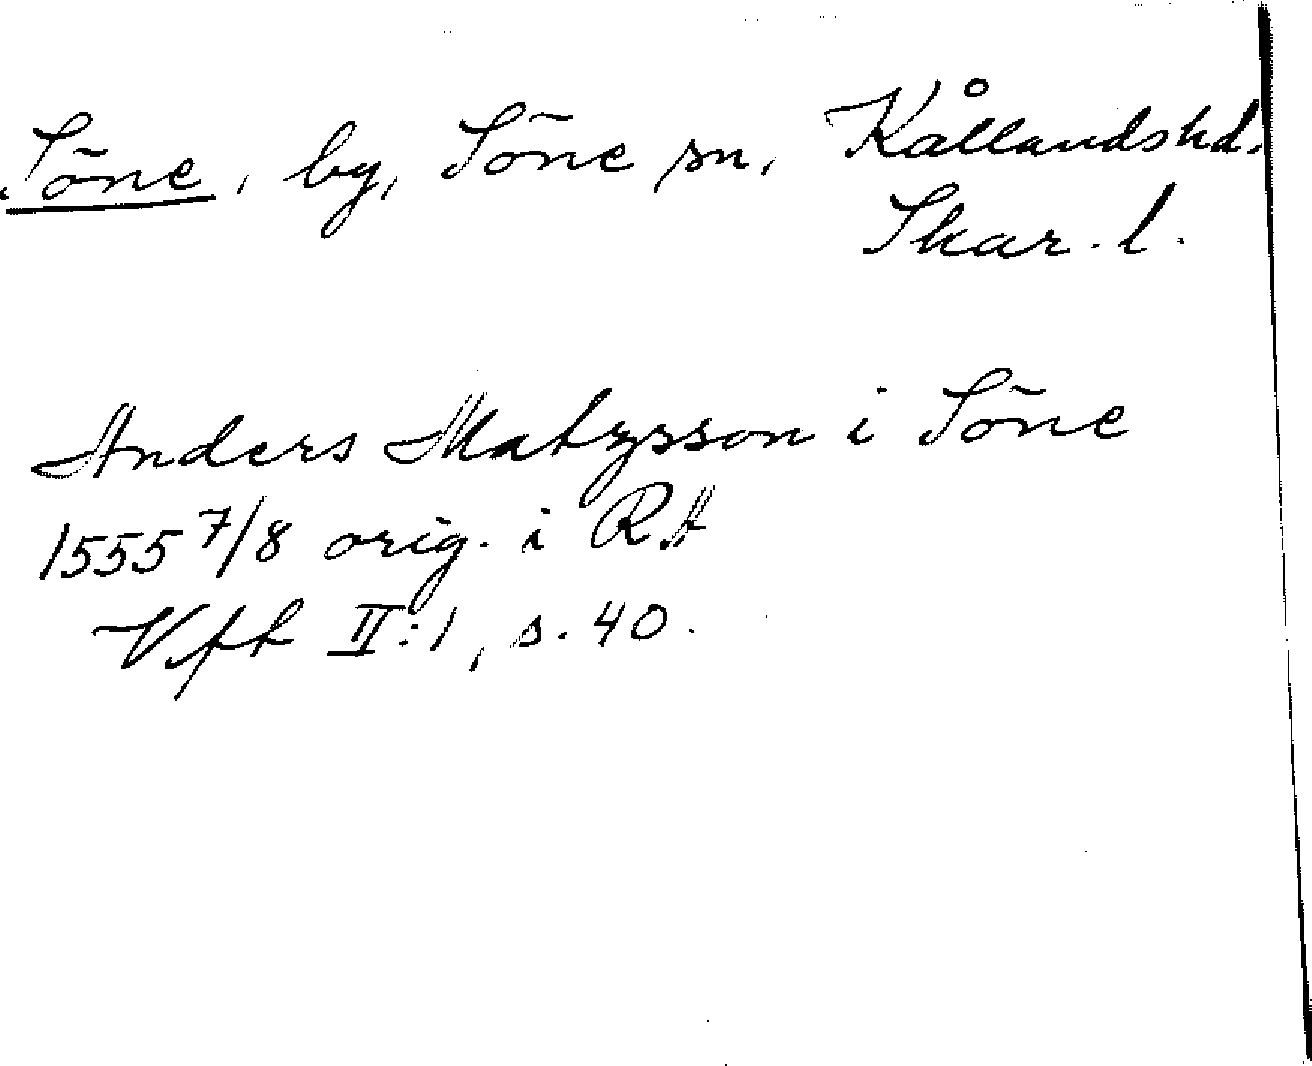 Söne, by, Söne sn, Kållandshd.
Skar. l.
Anders Matzsson i Söne
1555 7/8 orig. i RA
Vfh II:1, s. 40.